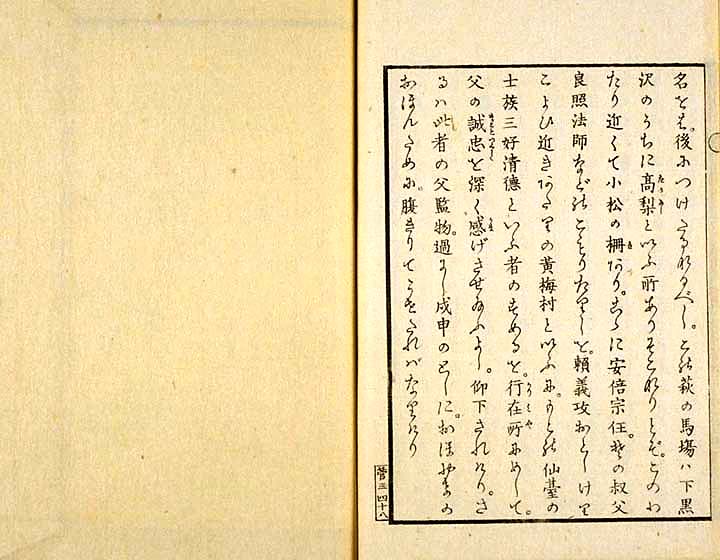 後につけたるなるべし。この萩の馬場ハ下黒
沢のうちに髙梨といふ所ありそこなりとぞ。このわ
たり近くて小松の柵あり。こゝに安倍宗任。その叔父
良照法師などのこもりたりしを。頼義攻おとしけり
こよひ近きあたりの黄梅村といふに。もとの仙臺の
士族三好清德といふ者のすめるを。行在所にめして。
父の誠忠を深く感げさせ給ふよし。仰下されけり。さ
るハ此者の父監物。過にし戊申のとしに。おほやけの
おほんために。腹きりてうせたれバなりけり
菅三 四十八